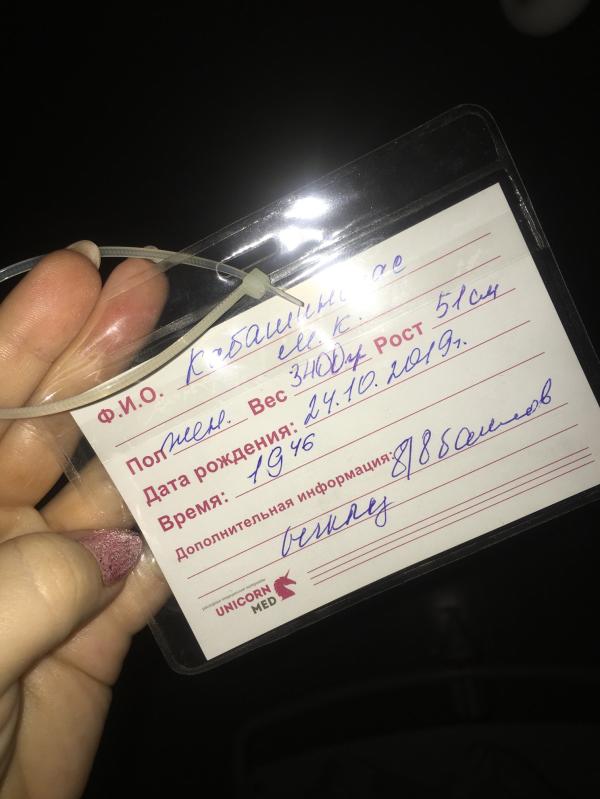 Ф.И.О.
М. К.
Пол жен. Вес 3400гр Рост 51см
Дата рождения: 24.10.2019г.
Время: 19 46
Дополнительная информация: 8/8 баллов
UNICORN
MED